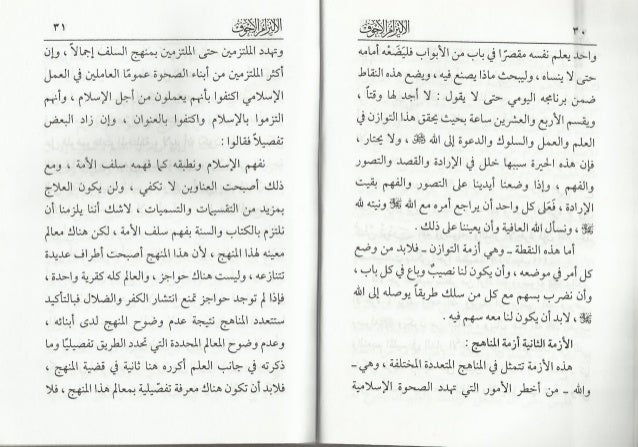 ٣٠
الالتزام الأجوف
واحد يعلم نفسه مقصرًا في باب من الأبواب فليَضَعْه أمامه
حتى لا ينساه ، وليبحث ماذا يصنع فيه ، ويضع هذه النقاط
ضمن برنامجه اليومي حتى لا يقول : لا أجد لها وقتاً ،
ويقسم الأربع والعشرين ساعة بحيث يحقق هذا التوازن في
العلم والعمل والسلوك والدعوة إلى الله ﷻ ، ولا يحتار ،
فإن هذه الحيرة سببها خلل في الإرادة والقصد والتصور
والفهم ، وإذا وضعنا أيدينا على التصور والفهم بقيت
الإرادة ، فَعَلى كل واحد أن يراجع أمره مع الله ﷻ ونيته لله
ﷻ ، ونسأل الله العافية وأن يعيننا على ذلك .
أما هذه النقطة ـ وهي أزمة التوازن ـ فلابد من وضع
كل أمر في موضعه ، وأن يكون لنا نصيبٌ وباع في كل باب ،
وأن نضرب بسهم مع كل من سلك طريقاً يوصله إلى الله
ﷻ ، لابد أن يكون لنا معه سهم فيه .
الأزمة الثانية أزمة المناهج :
هذه الأزمة تتمثل في المناهج المتعددة المختلفة ، وهي ـ
والله ـ من أخطر الأمور التي تهدد الصحوة الإسلامية
الالتزام الأجوف
٣١
وتهدد الملتزمين حتى الملتزمين بمنهج السلف إجمالاً ، وإن
أكثر الملتزمين من أبناء الصحوة عمومًا العاملين في العمل
الإسلامي اكتفوا بأنهم يعملون من أجل الإسلام ، وأنهم
التزموا بالإسلام واكتفوا بالعنوان ، وإن زاد البعض
تفصيلاً فقالوا :
نفهم الإسلام ونطبقه كما فهمه سلف الأمة ، ومع
ذلك أصبحت العناوين لا تكفي ، ولن يكون العلاج
بمزيد من التقسيمات والتسميات ، لاشك أننا يلزمنا أن
نلتزم بالكتاب والسنة بفهم سلف الأمة ، لكن هناك معالم
معينه لهذا المنهج ، لأن هذا المنهج أصبحت أطراف عديدة
تتنازعه ، وليست هناك حواجز ، والعالم كله كقرية واحدة ،
فإذا لم توجد حواجز تمنع انتشار الكفر والضلال فبالتأكيد
ستتعدد المناهج نتيجة عدم وضوح المنهج لدى أبنائه ،
وعدم وضوح المعالم المحددة التي تحدد الطريق تفصيليًّا وما
ذكرته في جانب العلم أكرره هنا ثانية في قضية المنهج ،
فلابد أن تكون هناك معرفة تفصيلية بمعالم هذا المنهج ، فلا